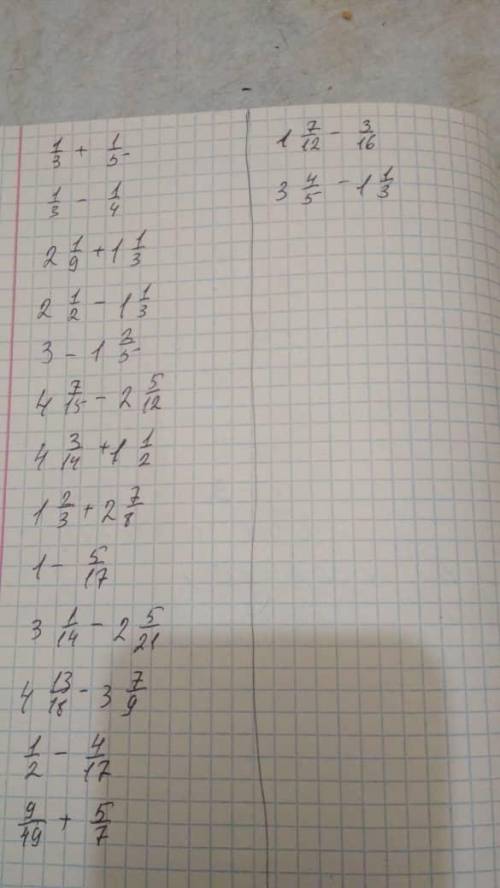 1/3 + 1/5
1/3 - 1/4
2 1/9 + 1 1/3
2 1/2 - 1 1/3
3 - 1 2/5
4 7/15 - 2 5/12
4 3/14 + 1 1/2
1 2/3 + 2 7/8
1 - 5/17
3 1/14 - 2 5/21
4 13/18 - 3 7/9
1/2 - 4/17
9/49 + 5/7
1 7/12 - 3/16
3 4/5 - 1 1/3